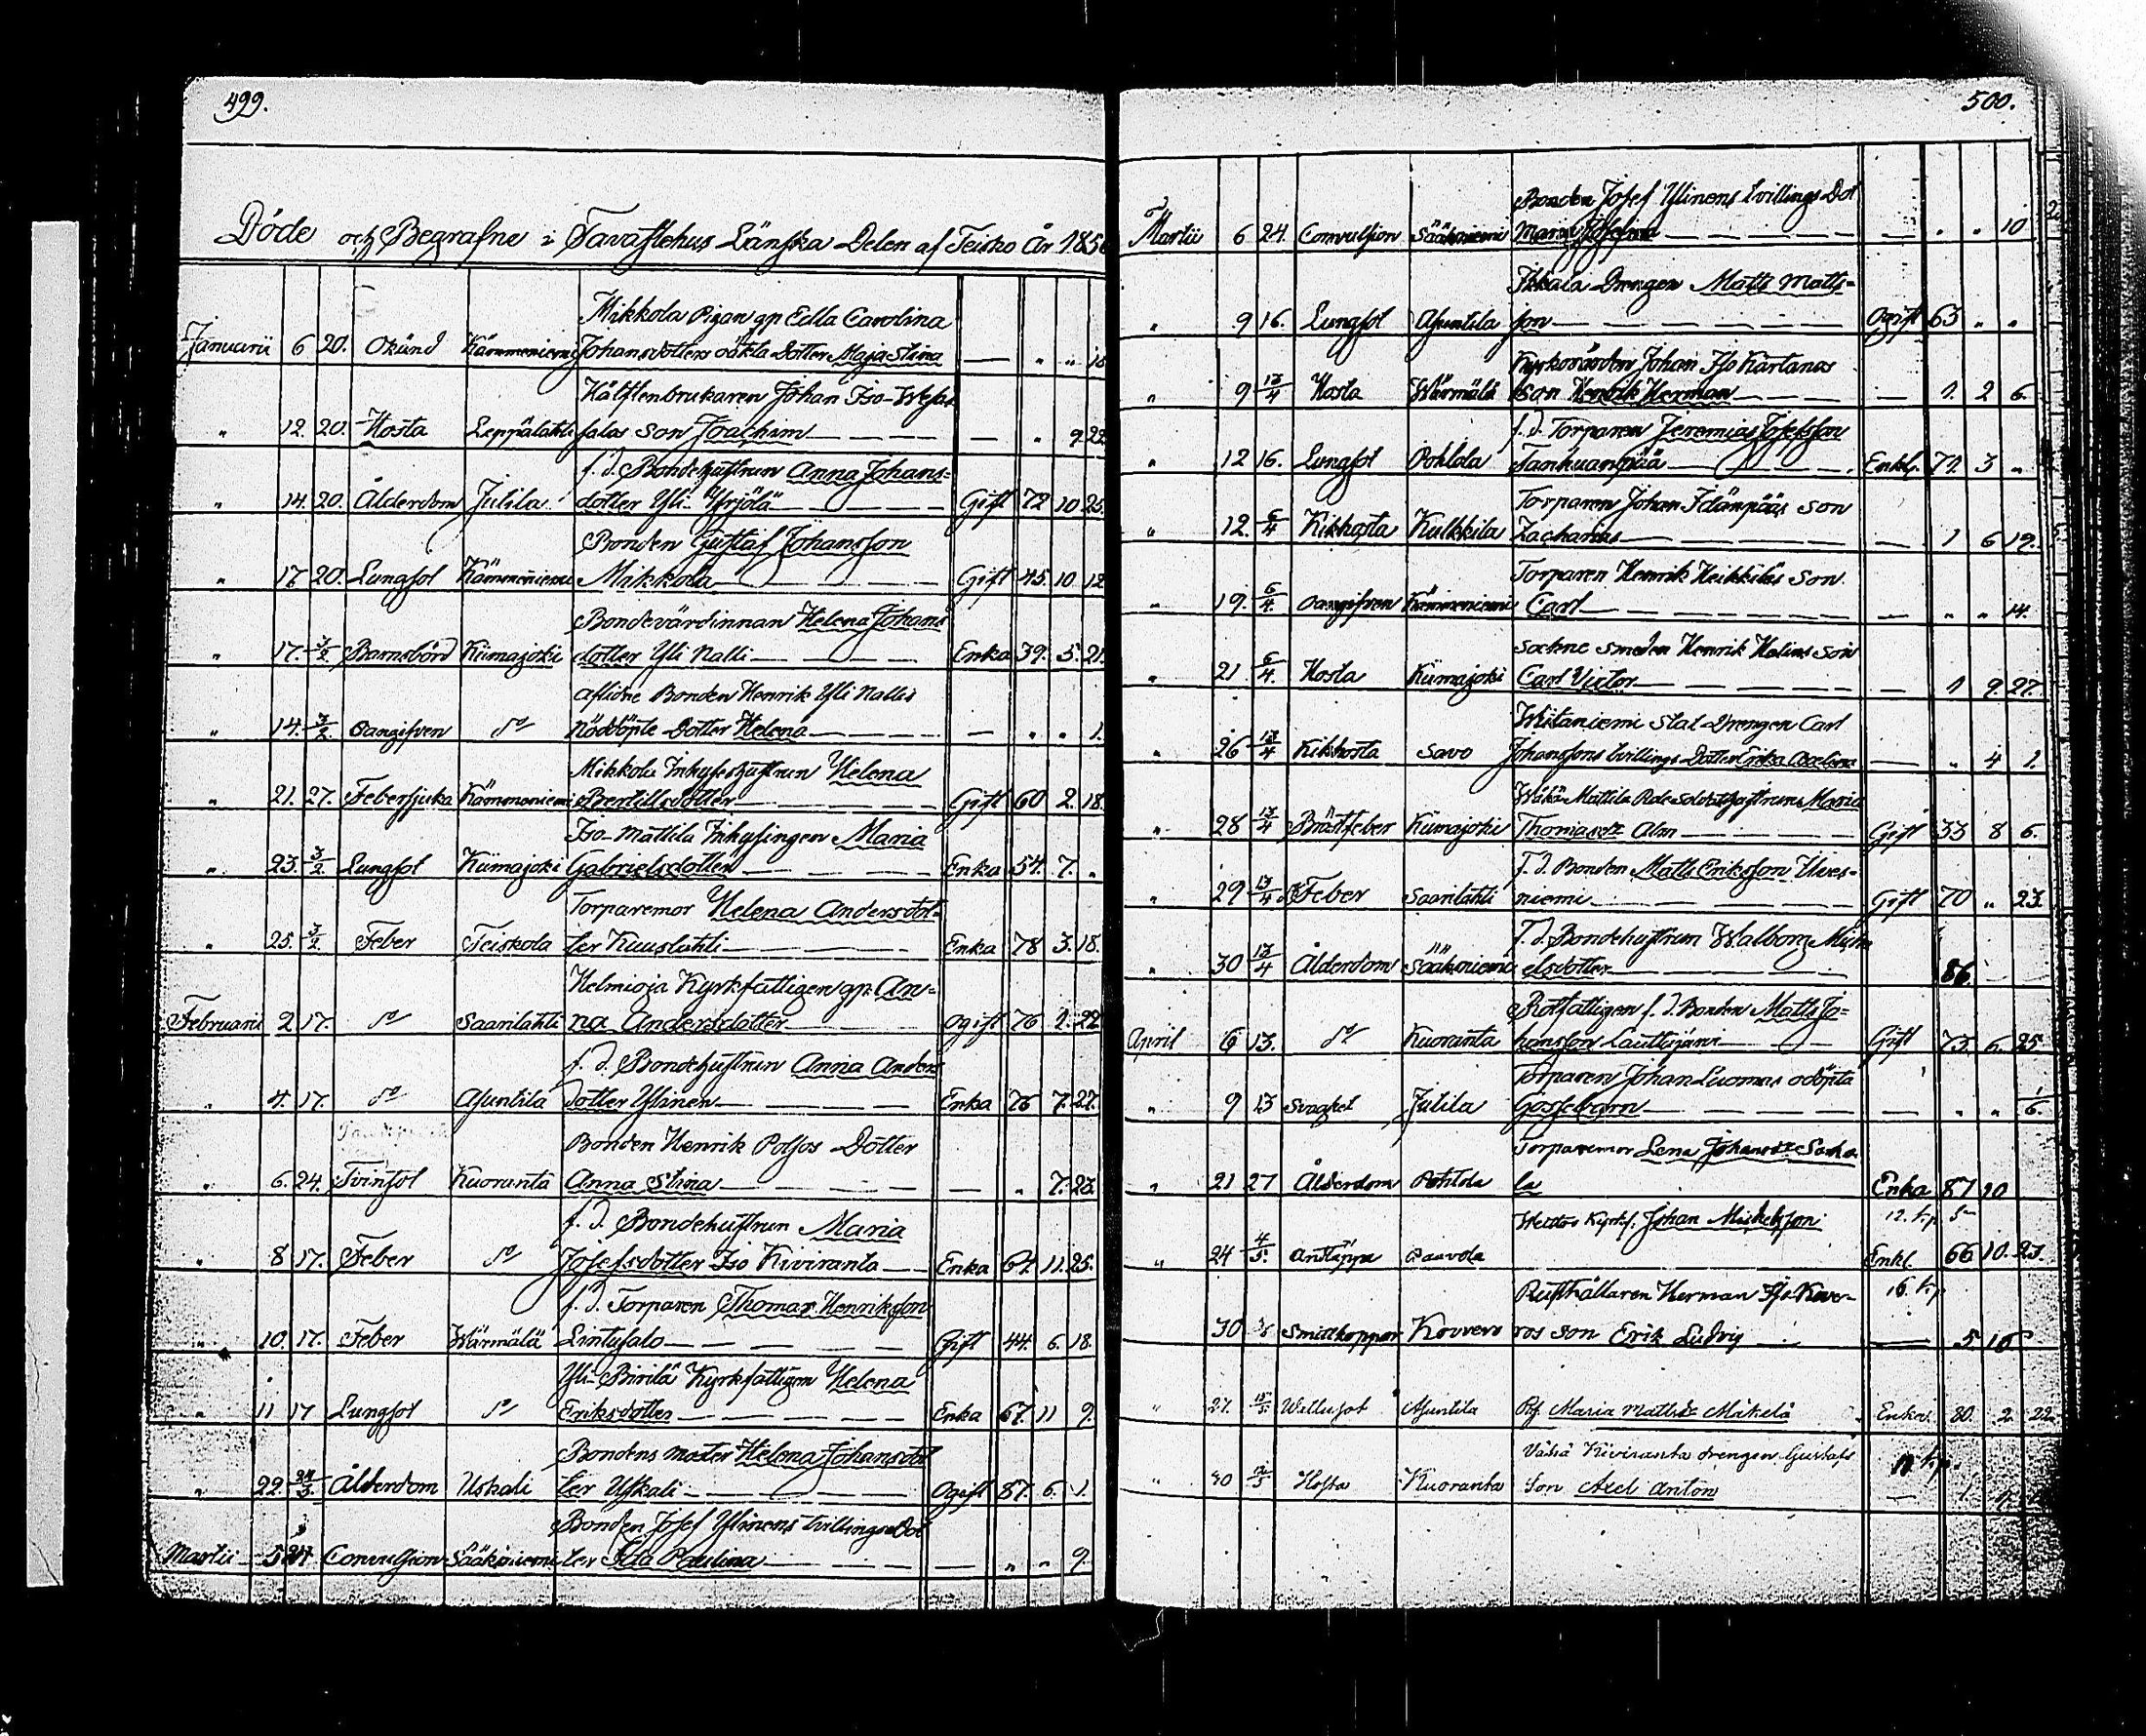 499.
Döde och Begrafne i Tavastehus Länska Delen af Teisko År 185
Mikkola Pigan gp Edla Carolina
Januarii 6 20. Okänd Kämmeniemi Johansdotters oäkta Dotter Maja Stina — " "
Hälftenbrukaren Johan Iso-
" 12. 20. Hosta Leppälahti salos Son Joachim — — — — " 9 22
f. d. Bondehustrun Anna Johans-
" 14. 20. Ålderdom Julila dotter Yli-Yrjölä — — — Gift 72 10 25.
Bonden Gustaf Johansson
" 17. 20. Lungsot Kämmeniemi Mikkola — — — Gift 45. 10 12
Bondevärdinnan Helena Johans
" 17. 3/2 Barnsbörd Kiimajoki dotter Yli Nalli — — — Enka 39. 5. 21.
aflidne Bonden Henrik Yli Nallis
" 14. 3/2 Oangifven do nöddöpte Dotter Helena — — — " " 1.
Mikkola Inhyseshustrun Helena
" 21. 27. Febersjuka Kämmeniemi Bertilsdotter — — — Gift 60 2. 18.
Iso-Mattila Inhysingen Maria
" 23. 3/2 Lungsot Kiimajoki Gabrielsdotter — — — Enka 54. 7. "
Torparemor Helena Andersdot-
" 25. 3/2 Feber Teiskola ter Kuuslahti — — — Enka 78 3. 18.
Helmioja Kyrkfattigen gp. An-
Februarii 2 17. do Saarilahti na Andersdotter — — Ogift 76 1. 22
f. d. Bondehustrun Anna Anders
" 4. 17. do Asuntila dotter Ylinen — — — Enka 76 7. 27.
Bonden Henrik Pohjos Dotter
" 6. 24. Tvinsot Kuoranta Anna Stina — — — — " 7. 23.
f. d. Bondehustrun Maria
" 8 17. Feber do Josefsdotter Iso Kiviranta — Enka 64. 11. 25.
f. d. Torparen Thomas Henriksson
" 10. 17. Feber Wärmälä Lintusalo — — — Gift 44. 6. 18.
Yli-Pirilä Kyrkfattigen Helena
" 11 17 Lungsot do Eriksdotter — — — Enka 67. 11 9.
Bondens moster Helena Johansdot
" 22. 24/3 Ålderdom Uskali ter Uskali — — — Ogift 87. 6. 1.
Bonden Josef Ylinens tvillings Dot
Martii 5 24 Convulsion Sääksniemi ter Ida Paulina — — — — " " 9.
500.
Bonden Josef Ylinens tvillings Dot
Martii 6 24. Convulsion Sääksniemi Maria Josefina — — — — " " 10
Drengen Matts Matts-
" 9 16. Lungsot Asuntila son — — — Ogift 63 " "
Kyrkovärden Johan Iso Kartanos
" 9 13/4 Hosta Wärmälä Son Henrik Herman — — — 1. 2 6.
f. d. Torparen Jeremias Josefsson
" 12 16. Lungsot Pohtola Tanhuanpää — — — Enkl. 71. 3 "
Torparen Johan Idänpääs Son
" 12. 6/4 Kikhosta Kulkkila Zacharias — — — — 1 6 19.
Torparen Henrik Heikkiläs Son
" 19. 6/4. Oangifven Kämmeniemi Carl — — — — " " 14.
Sockne smeden Henrik Helins Son
" 21 6/4. Hosta Kiimajoki Carl Victor — — — — 1 9. 27.
Wiitaniemi Stat Drengen Carl
" 26 13/4 Kikhosta Savo Johanssons tvillings Dotter Erika Axelina — " 4 1.
Wähä Mattila Rote soldatshustrun Maria
" 28 13/4 Bröstfeber Kiimajoki Thomasdr Alm — — — Gift 33 8 6.
f. d. Bonden Matts Eriksson Uves-
" 29 13/4 Feber Saarilahti niemi — — — Gift 70 " 23.
f. d. Bondehustrun Walborg Mick
" 30 13/4 Ålderdom Sääksniemi elsdotter — — — 86.
Rotfattigen f. d. Bonden Matts Jo-
April 6 13. do Kuoranta hansson Lauttajärvi — Gift 73. 6. 25.
Torparen Johan Luomas odöpta
" 9 13 Svaghet Julila Gossebarn — — — — " " 1/6
Torparemor Lena Johansdr Sacka
" 21 27 Ålderdom Pohtola la Enka 87 10
Kyrkf. Johan Mickelsson 12. kp 5
" 24 4/5. Paavola Enkl. 66 10. 23.
Rusthållaren Herman Iso-Kove- 16. kp
30 Smittkoppor Kovero ros son Erik Ludvig — — 5 16
" 27. Asuntila Rf. Maria Mattsdr Mäkelä Enka. 80. 2. 22.
Vähä Kiviranta drengen Gustafs kp.
" 30 Hosta Kuoranta Son Axel Anton — 1